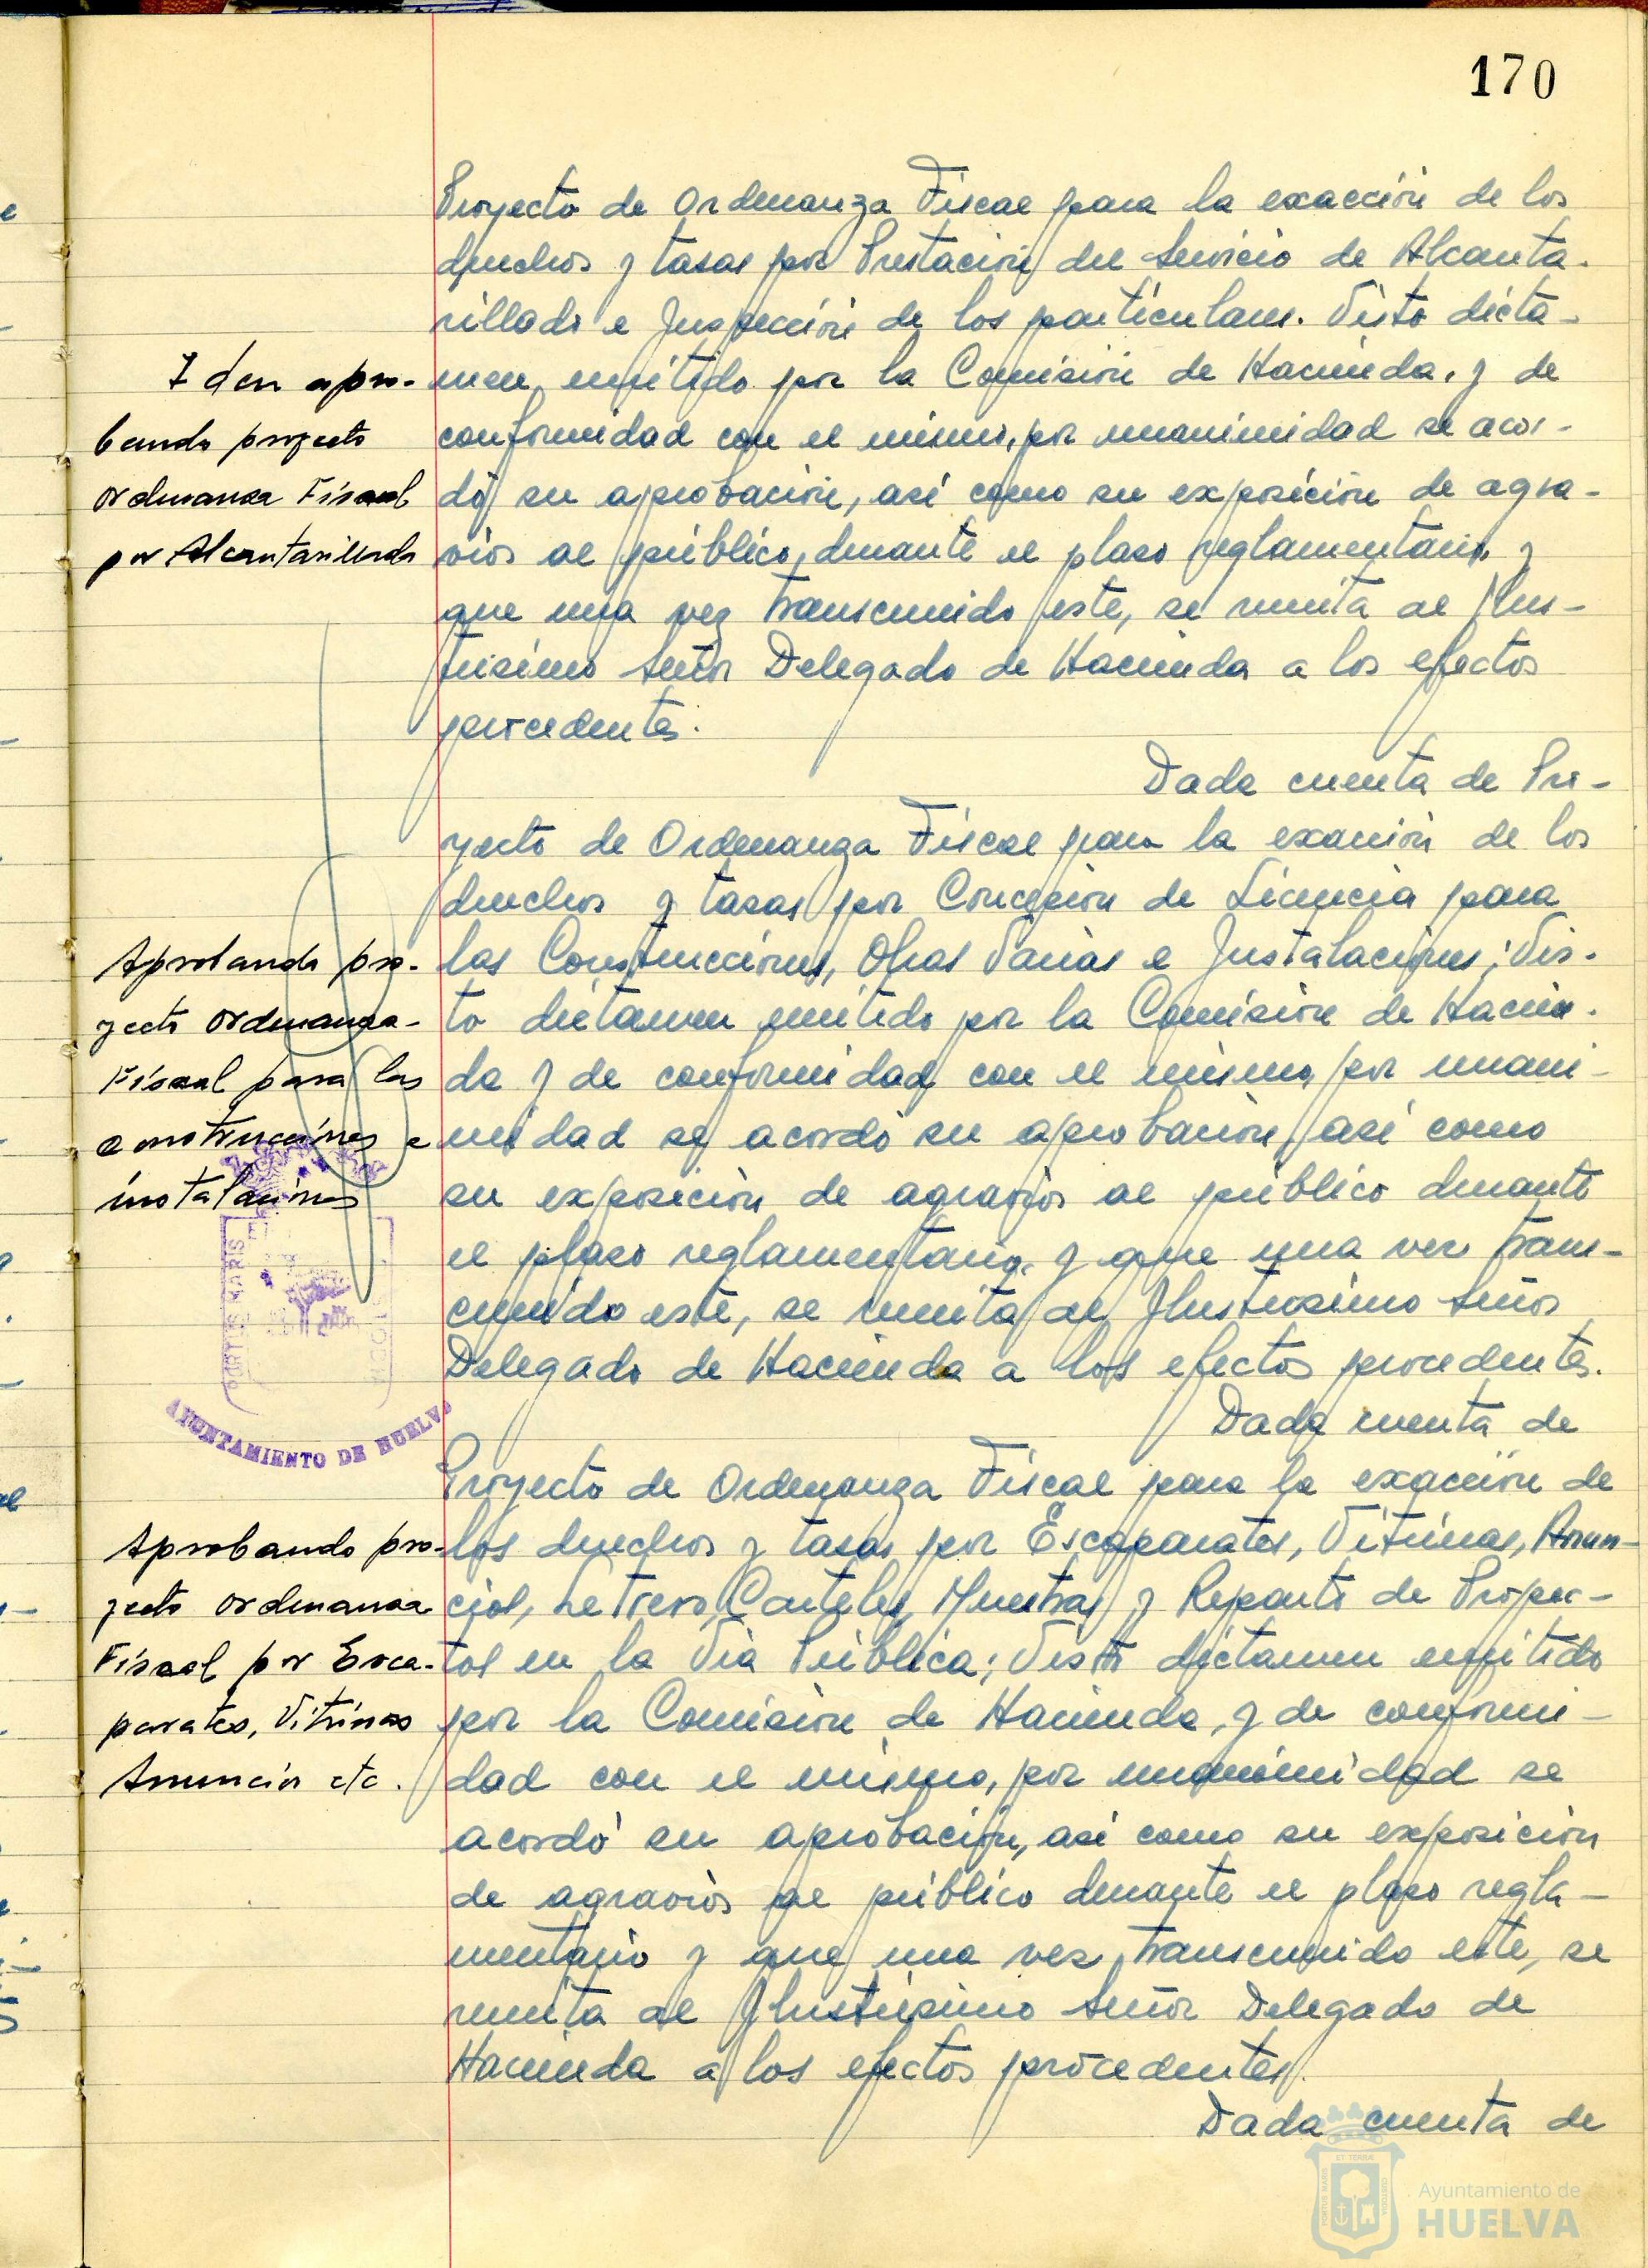 170
Proyecto de Ordenanza Fiscal para la exacción de los
derechos y tasas por Prestación del Servicio de Alcanta-
rillado e Inspección de los particulares. Visto dicta-
men emitido por la Comisión de Hacienda, y de
conformidad con el mismo, por unanimidad se acor-
dó su aprobación, así como su exposición de agra-
vios al público, durante el plazo reglamentario y
que una vez transcurido este, se remita al Ilus-
trisimo Señor Delegado de Hacienda a los efectos
procedentes.
Idem apro-
bando proyecto
ordenanza Fiscal
por Alcantarillado
Dada cuenta de Pro-
yecto de Ordenanza Fiscal para la exacción de los
derechos y tasas por Concesión de Licencia para
las Construcciones, Obras Varias e Instalaciones; Vis-
to dictamen emitido por la Comisión de Hacien-
da y de conformidad con el mismo, por unani-
midad se acordó su aprobación, así como
su exposición de agravios al público durante
el plazo reglamentario, y que una vez trans-
currido este, se remita al Ilustrisimo Señor
Delegado de Hacienda a los efectos procedentes.
Aprobando pro-
yecto Ordenanza-
Fiscal para las
construcciones e
instalaciones
PORTUS MARIS
AYUNTAMIENTO DE HUELVA
Dada cuenta de
Proyecto de Ordenanza Fiscal para la exacción de
los derechos y tasas por Escaparates, Vitrinas, Anun-
cios, Letreros, Carteles, Muestras y Reparto de Prospec-
tos en la Vía Pública; Visto dictamen emitido
por la Comisión de Hacienda, y de conformi-
dad con el mismo, por unanimidad se
acordó su aprobación, así como su exposición
de agravios al público durante el plazo regla-
mentario y que una vez transcurrido este, se
remita al Ilustrisimo Señor Delegado de
Hacienda a los efectos procedentes.
Aprobando pro-
yecto ordenanza
Fiscal por Esca-
parates, Vitrinas
Anuncios etc.
Dada cuenta de
Ayuntamiento de
HUELVA